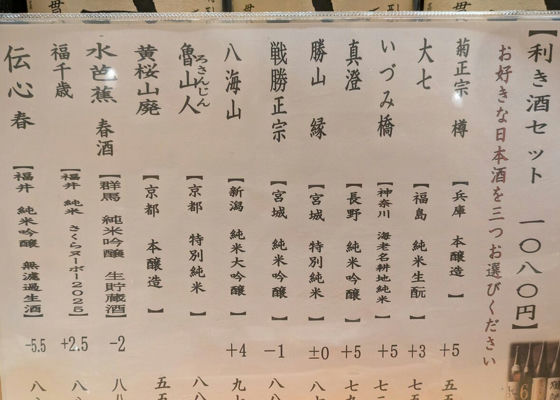 【利き酒セット 一〇八〇円】
お好きな日本酒を三つお選びください
菊正宗 樽 【兵庫 本醸造】 +5 五五
大七 【福島 純米生酛】 +3 七五
いづみ橋 【神奈川 海老名耕地純米】 +5 七二
真澄 【長野 純米吟醸】 +5 七九
勝山 縁 【宮城 特別純米】 ±0 八七
戦勝正宗 【宮城 純米吟醸】 -1 八八
八海山 【新潟 純米大吟醸】 +4 九七
魯山人 ろさんじん 【京都 特別純米】 八八
黄桜山廃 【京都 本醸造】 五五
水芭蕉 春酒 【群馬 純米吟醸 生貯蔵酒】 -2 八八
福千歳 【福井 純米 さくらヌーボー2025】 +2.5 八
伝心 春 【福井 純米吟醸 無濾過生酒】 -5.5 八